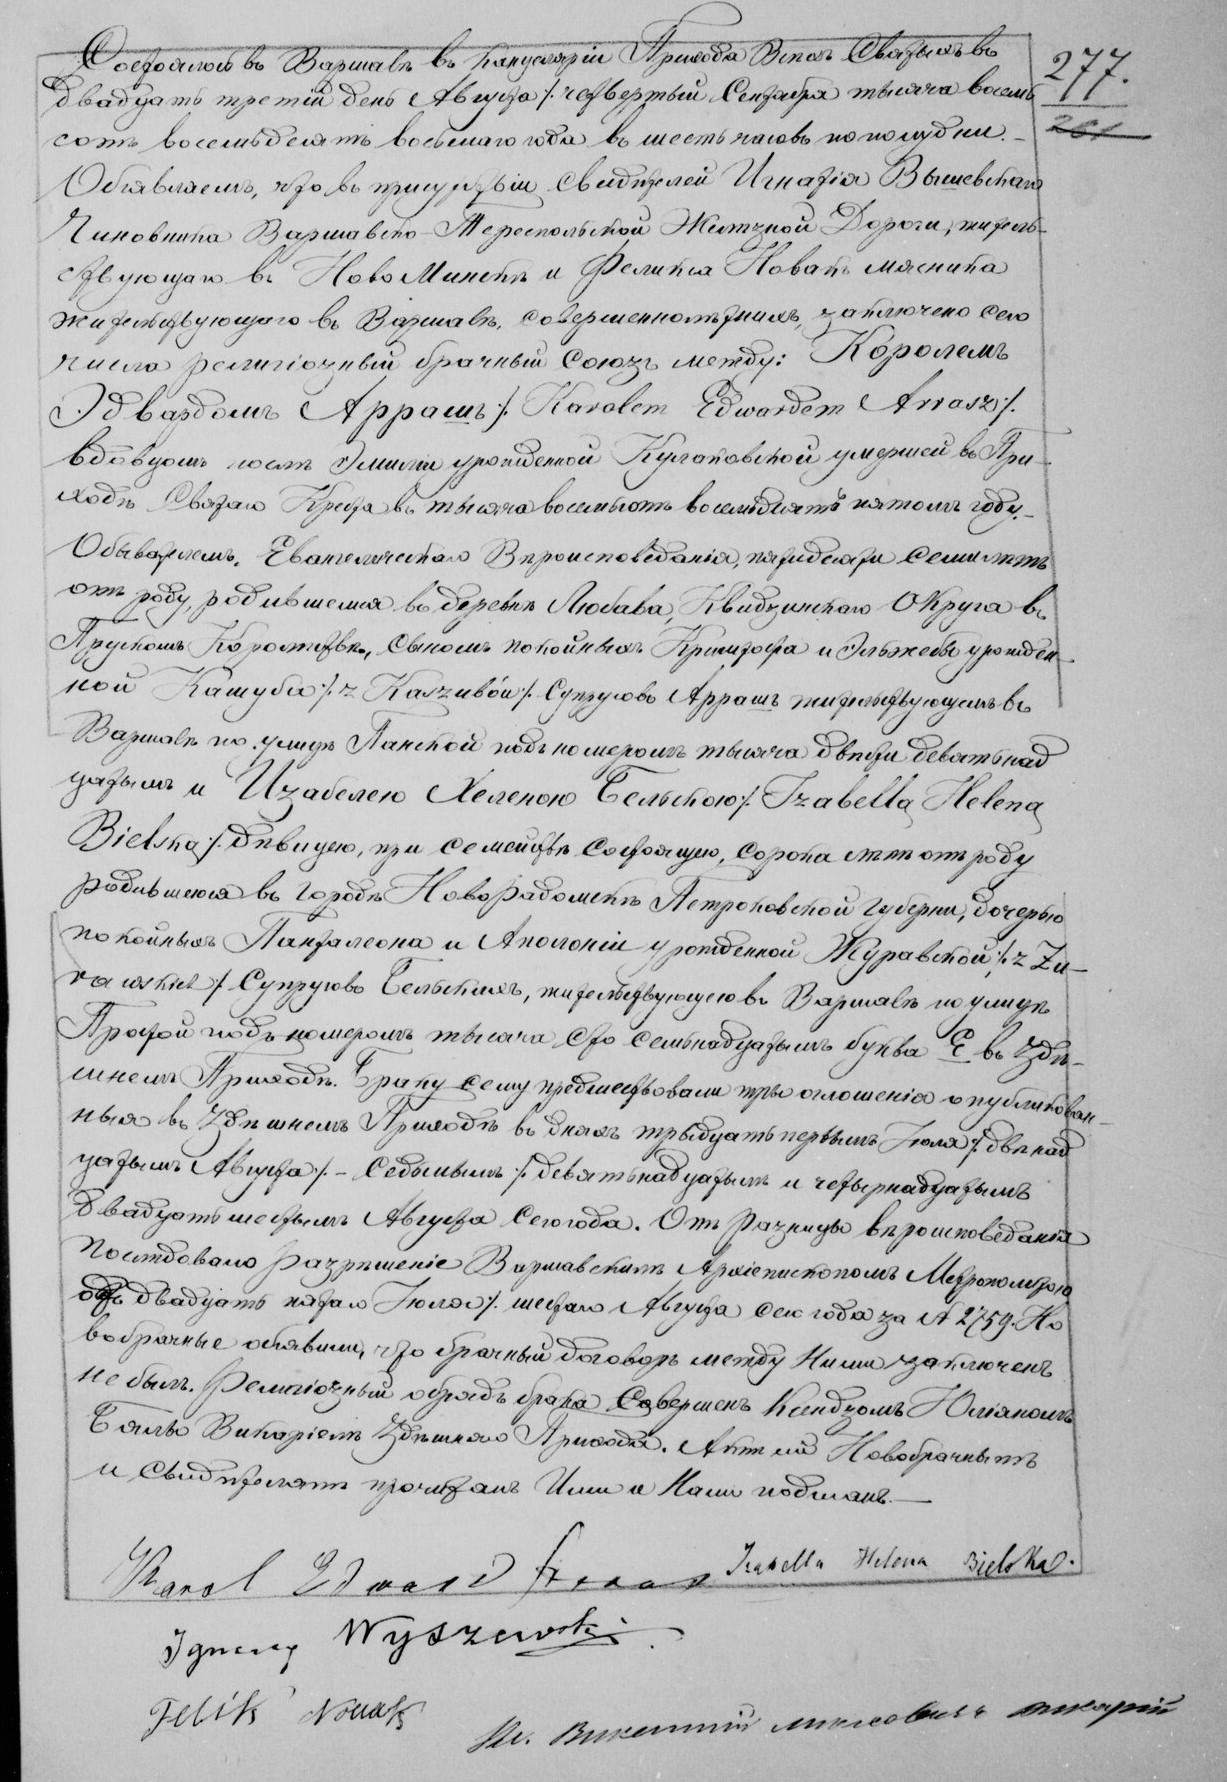 Состоялось въ Варшавѣ въ Канцеляріи Прихода Всѣхъ Святыхъ въ
277.
двадцать третій день Августа /: четвертый Сентября тысяча восемь
сотъ восемьдесятъ восьмаго года въ шесть часовъ по полудни. –
Объявляемъ, что въ присутствіи свидѣтелей Игнатія Вышевскаго
Чиновника Варшавско-Тереспольской Желѣзной Дороги, житель-
ствующаго въ НовоМинскѣ и Феликса Новакъ мясника
жительствующаго въ Варшавѣ, совершеннолѣтнихъ, заключено сего
числа религіозный брачный союзъ между: Королемъ
Эдвардомъ Аррашъ /: Karolem Edwardem Arrasz /:
вдовцомъ послѣ Эмиліи урожденной Кулаковской умершей въ При-
ходѣ Святаго Креста въ тысяча восемьсотъ восемьдесятъ пятомъ году. –
Обывателемъ, Евангелическаго Вѣроисповеданія, пятидесяти семи лѣтъ
отъ роду, родившемся въ деревнѣ Любава, Квидзинскаго Округа въ
Прускомъ Королевствѣ, сыномъ покойныхъ Криштофа и Эльжбеты урожден-
ной Кашуба /: z Kaszubów /: Супруговъ Аррашъ жительствующемъ въ
Варшавѣ по улицѣ Панской подъ номеромъ тысяча двѣсти девятьнад
цатымъ и Изабелею Хеленою Бельскою /: Izabellą Heleną
Bielską /: дѣвицею, при семействѣ состоящею, сорока лѣтъ отъ роду
родившеюся въ городѣ НовоРадомскѣ Петроковской губерни, дочерью
покойныхъ Панталеона и Аполоніи урожденной Журавской /: z Żu-
rawskich /: Супруговъ Бельскихъ, жительствующею въ Варшавѣ по улицѣ
Простой подъ номеромъ тысяча сто семьнадцатымъ буква Е въ Здѣ-
шнемъ Приходѣ. Браку сему предшествовали три оглошенія опубликован-
ныя въ Здѣшнемъ Приходѣ въ дняхъ тридцать первымъ Іюля /: двѣнад
цатымъ Августа /: – седьмымъ /: девятьнадцатымъ и четырнадцатымъ
двадцать шестымъ Августа сего года. Отъ разницы вѣроисповеданія
послѣдовало разрѣшеніе Варшавскимъ Архіепископомъ Метрополитою
отъ двадцать пятаго Іюля /: шестаго Августа сего года за № 2759. Но
вобрачные объявили, что брачный договоръ между Ними заключенъ
не былъ. Религіозный обрядъ брака совершенъ Ксендзомъ Юліаномъ
Бялко Викаріемъ Здѣшняго Прихода. Актъ сей Новобрачнымъ
и Свидѣтелямъ прочитанъ Ими и Нами подписанъ. –
Karol Edward Arrasz Izabella Helena Bielska.
Ignacy Wyszewski
Felik Nowak
Кс. Викентій викарій